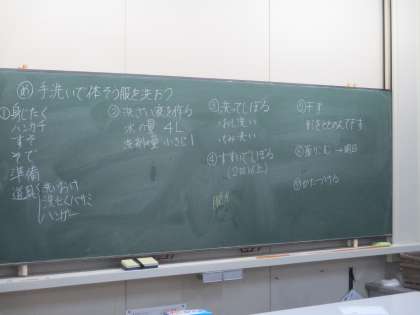 め 手洗いで体そう服を洗おう
①身じたく
ハンカチ
すそ
そで
準備
道具 洗いおけ
洗たくバサミ
ハンガー
②洗ざい液を作る
水の量 4L
洗剤の量 小さじ1
③洗ってしぼる
おし洗い
もみ洗い
④すすいでしぼる
(2回以上)
⑤干す
形をととのえて干す
⑥取りこむ →明日
⑦かたづける